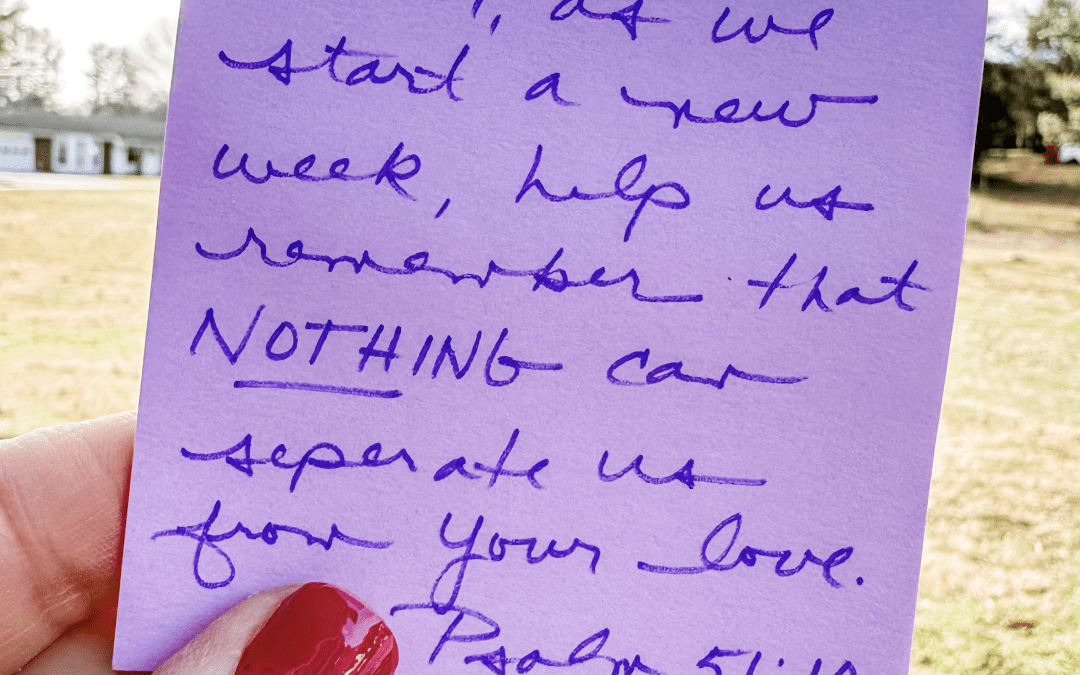 , as we
start a new
week, help us
remember that
NOTHING can
seperate us
from Your love.
Psalm 51:10